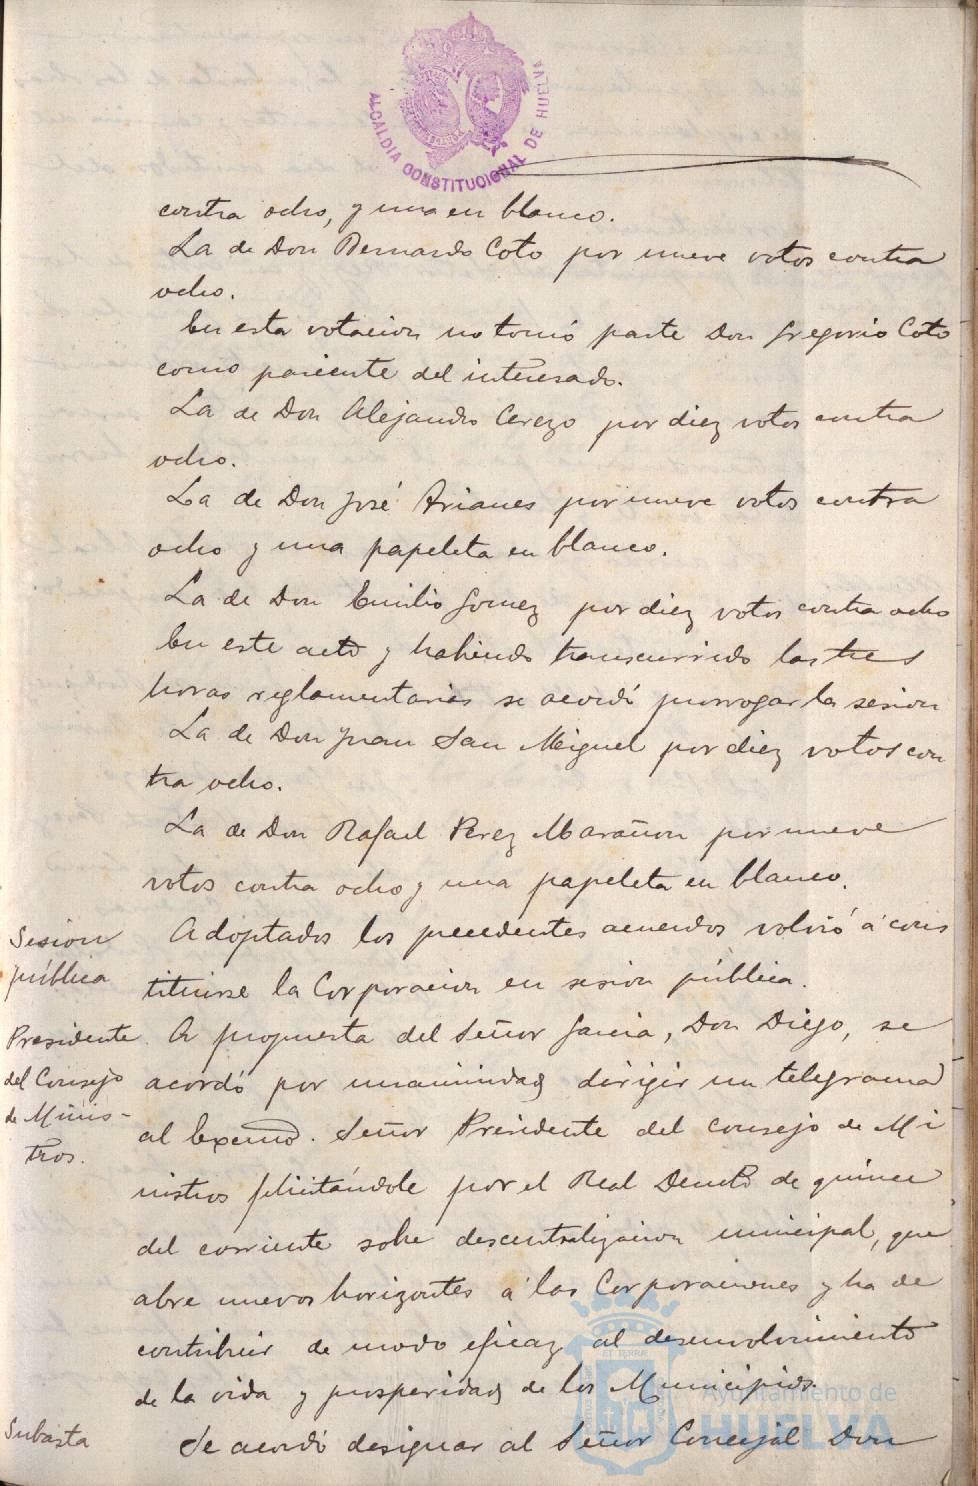 ALCALDIA CONSTITUCIONAL DE HUELVA
contra ocho, y una en blanco.
La de Don Bernardo Coto por nueve votos contra
ocho.
En esta votacion no tomó parte Don Gregorio Coto
como pariente del interesado.
La de Don Alejandro Cerezo por diez votos contra
ocho.
La de Don José Arianes por nueve votos contra
ocho y una papeleta en blanco.
La de Don Emilio Gomez por diez votos contra ocho
En este acto y habiendo transcurrido las tres
horas reglamentarias se acordó prorrogar la sesion
La de Don Juan San Miguel por diez votos con
tra ocho.
La de Don Rafael Perez Marañon por nueve
votos contra ocho y una papeleta en blanco.
Sesion
pública
Adoptados los precedentes acuerdos volvió á cons
tituirse la Corporacion en sesion pública.
Presidente
del Consejo
de Minis-
tros.
A propuesta del Señor Garcia, Don Diego, se
acordó por unanimidad dirigir un telegrama
al Excmo. Señor Presidente del Consejo de Mi
nistros felicitándole por el Real Decreto de quince
del corriente sobre descentralizacion municipal, que
abre nuevos horizontes á las Corporaciones y ha de
contribuir de modo eficaz al desenvolvimiento
de la vida y prosperidad de los Municipios.
Subasta
Se acordó designar al Señor Concejal Don
Ayuntamiento de
HUELVA